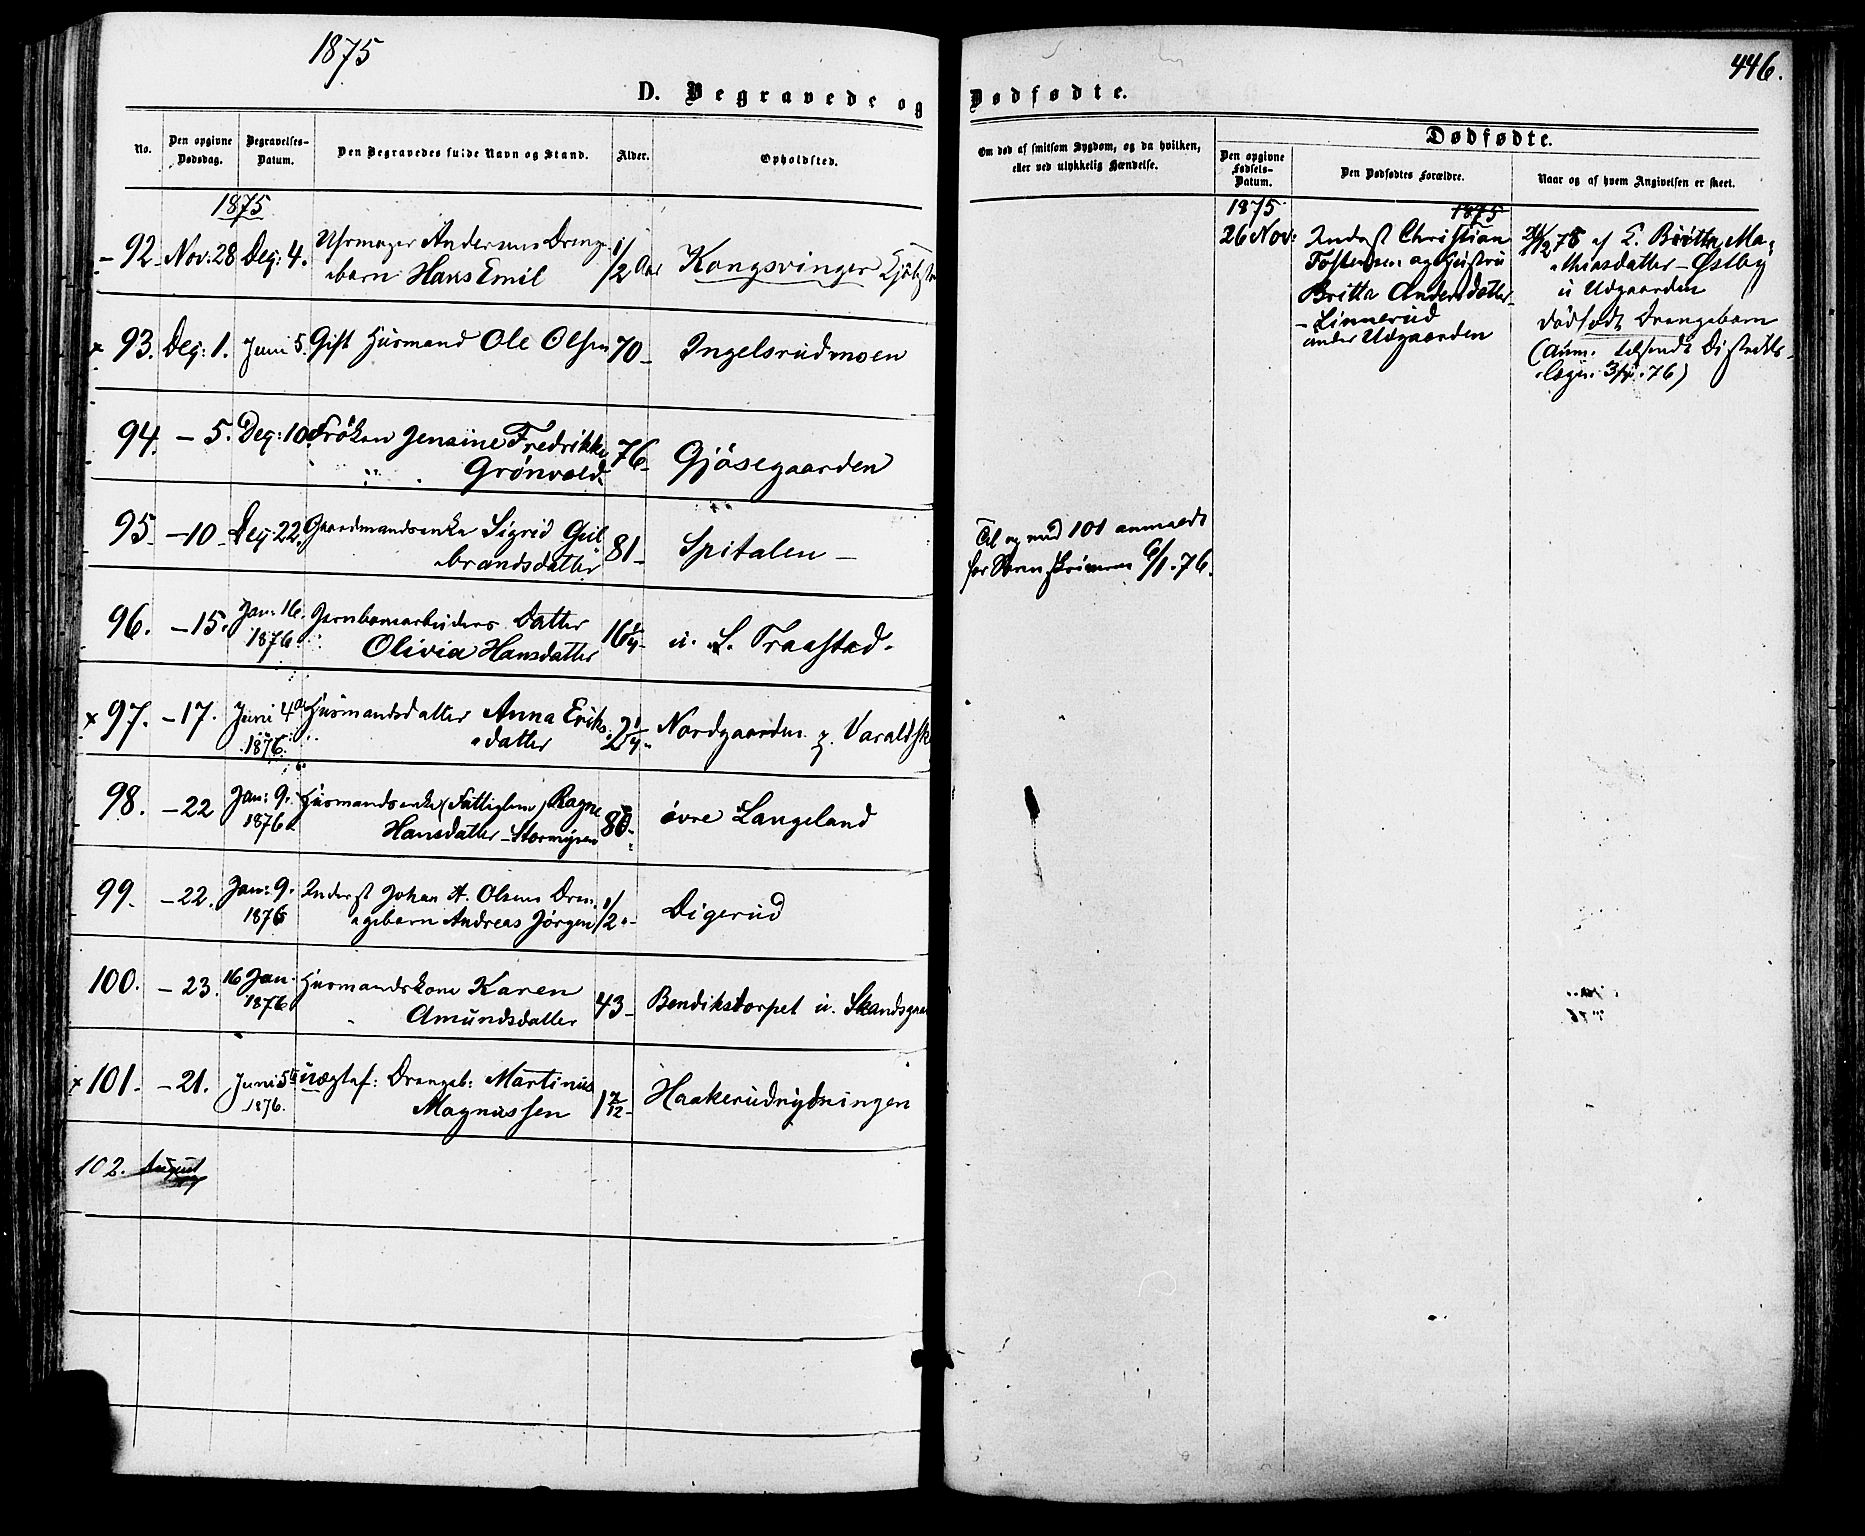 1875
446.
D. Begravede og Dødfødte.
No.
Den opgivne Dødsdag.
Begravelses-Datum.
Den Begravedes fulde Navn og Stand.
Alder.
Opholdsted.
Om død af smitsom Sygdom, og da hvilken,
eller ved ulykkelig Hændelse.
Dødfødte.
Den opgivne Fødsels-Datum.
Den Dødfødtes Forældre.
Naar og af hvem Angivelsen er skeet.
1875
92. Nov: 28 Dec: 4. Uhrmager Andersens Drenge-
barn Hans Emil 1/2 Aar Kongsvinger
93. Dec: 1. Juni 5. Gift Husmand Ole Olsen 70 - Ingelsrudmoen
94. - 5. Dec: 10. Frøken Jensine Fredrikke
Grønvold 76 - Gjøsegaarden
95. - 10. Dec: 22. Gaardmandsenke Sigrid Gul
brandsdatter 81 - Spitalen -
96. - 15. Jan: 16. Jernbanearbeiders Datter
1876. Olivia Hansdatter 16 1/4 - u. L. Traastad.
x 97. - 17. Juni 4de Husmandsdatter Anna Eriks
1876. datter 2 1/4 - Nordgaarden
98. - 22 Jan: 9. Husmandsenke (Fattiglem) Ragne
1876. Hansdatter - Stormyren øvre Langeland
99. - 22. Jan: 9. Inderst Johan A. Olsens Dren
1876 gebarn Andreas Jørgen 1/2 - Digerud
100. - 23. 16 Jan. Husmandskone Karen
1876 Amundsdatter 43 - Bendikstorpet u. Skandsgaar
x 101. - 21. Juni 5te uægtef: Drengeb: Martinus
1876. Magnussen 1 7/12 - Haakerudrydningen
102. August
Til og med 101 anmeldt
for 6/1. 76.
1875
26 Nov:
1875
Inderst Christian
Tostensen og Hustru
Britta Andersdatter
- Linnerud
under Udgaarden
af E. Britta Ma-
thiasdatter - Østby
u Udgaarden
dødfødt Drengebarn
(Anm. tilsendt Distrikts-
læge. 76)